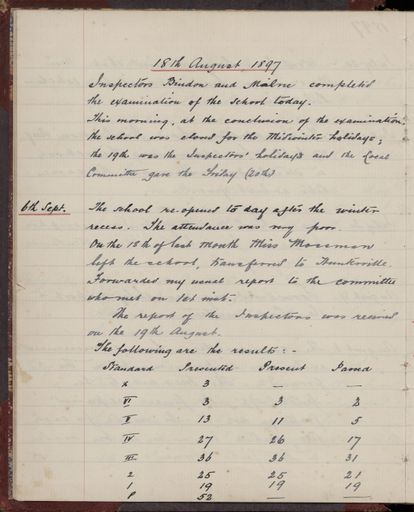 18th August, 1897
Inspectors Bindon and Milne completed
the examination of the school today.
This morning, at the conclusion of the examination,
the school was closed for the Midwinter holidays;
the 19th was the Inspectors' holiday and the Local
Committee gave the Friday (20th)
6th Sept. The school re-opened to day after the winter
recess. The attendance was very poor.
On the 18th of last month Miss Mossman
left the school, transferred to Hunterville
Forwarded my usual report to the committee
who met on 1st inst.
The report of the Inspectors was received
on the 19th August.
The following are the results: -
Standard Presented Present Passed
X 3 — —
VI 3 3 2
V 13 11 5
IV 27 26 17
III 36 36 31
2 25 25 21
1 19 19 19
P 52 — —